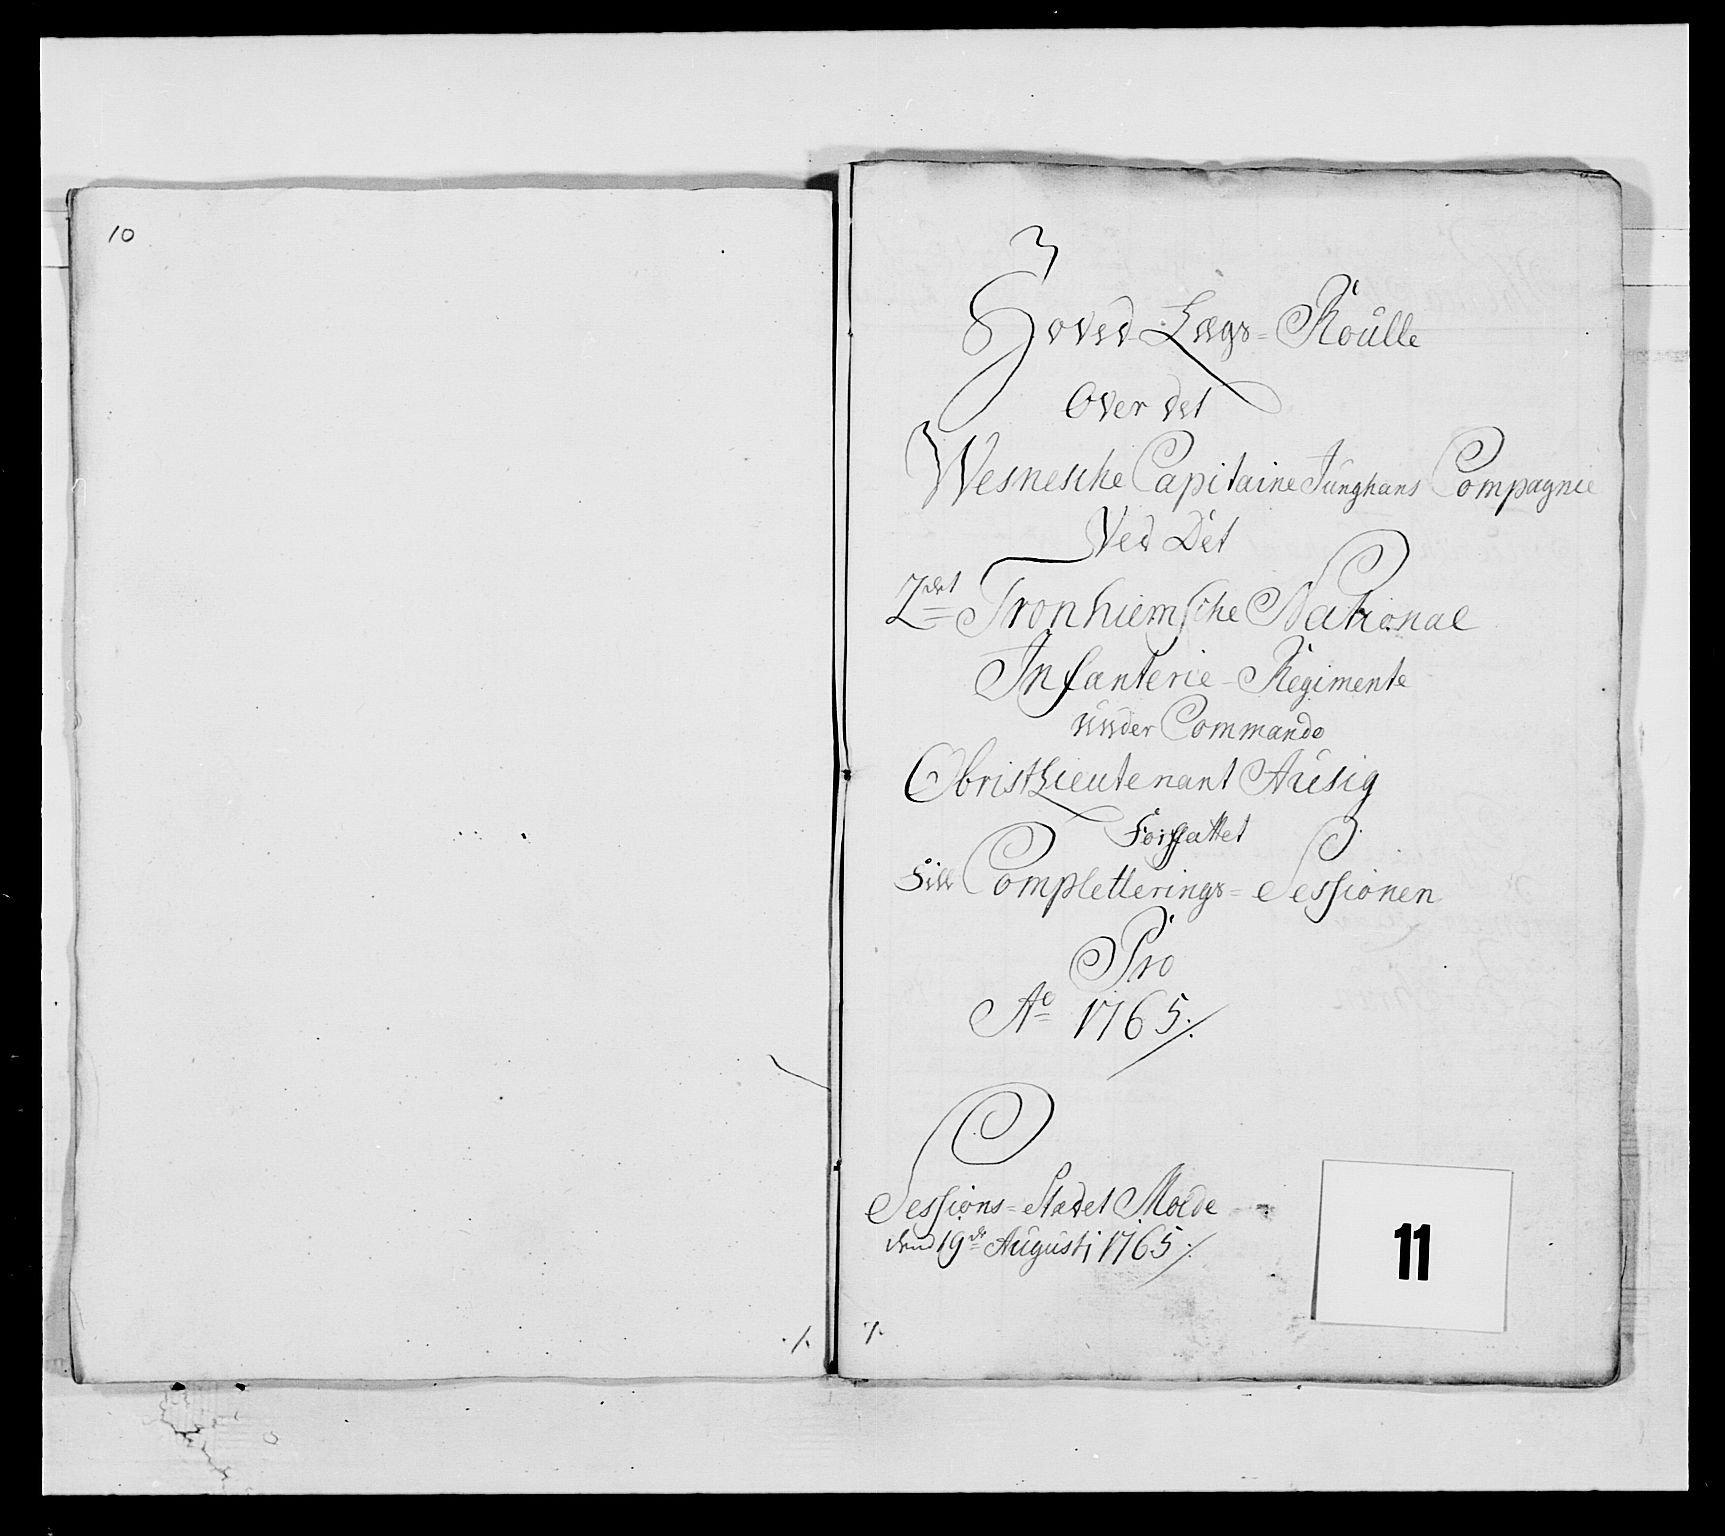 10
Hoved Lægs = Roulle
Over det
Wesneske Capitaine Junghans Compagnie
Ved Det
2det Tronhiemsche National
Infanterie = Regimente
under Commando
Obristlieutenant Ausig
Forfattet
Till Completterings = Sessionen
Pro
Ao 1765 ./.
Sessions = Stædet Molde
dend 19de Augusti 1765 ./.
11